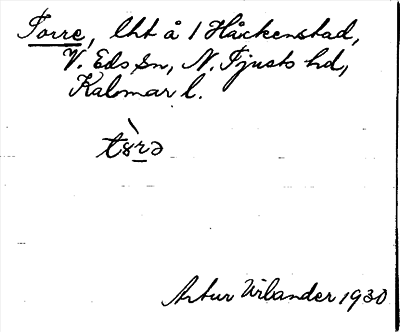 Torre, lht å 1 Håckenstad,
V. Eds sn, N. Tjusts hd,
Kalmar l.
tòrə
Artur Virlander 1930